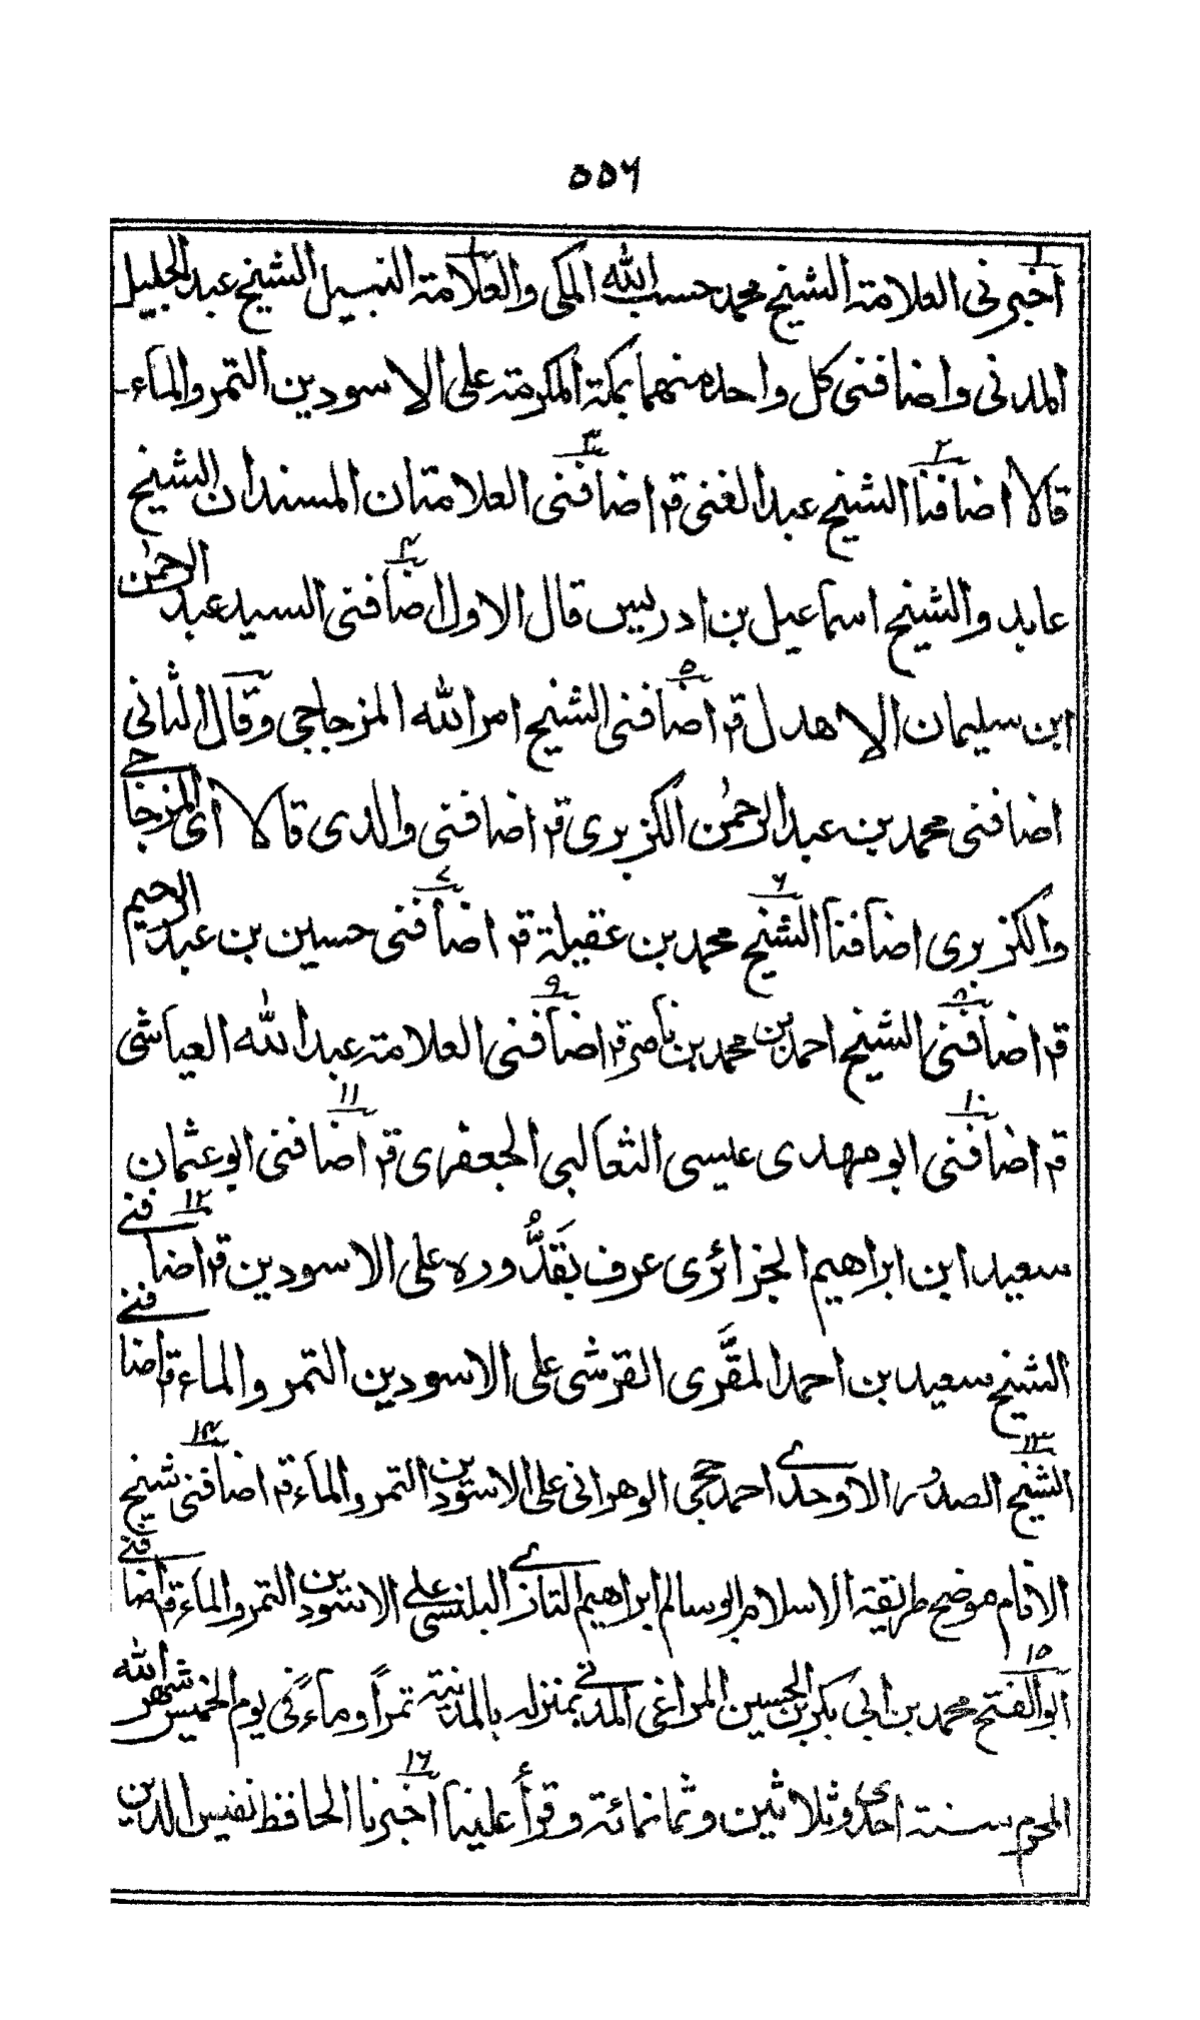 ٥٥٦
١
اخبرنى العلامة الشيخ محمد حسب الله المكى والعلامة النبيل الشيخ عبد الجليل
المدنى واضافنى كل واحد منهما بمكة المكرمة على الاسودين التمر والماء
٢ ٣
قالا اضافنا الشيخ عبد الغنى قم اضافنى العلامتان المسندان الشيخ
٤
عابد والشيخ اسماعيل بن ادريس قال الاول اضافنى السيد عبد الرحمٰن
٥
ابن سليمان الاهدل قم اضافنى الشيخ امر الله المزجاجى وقال الثانى
اضافنى محمد بن عبد الرحمٰن الكزبرى قم اضافنى والدى قالا اى المزجاجى
٦ ٧
والكزبرى اضافنا الشيخ محمد بن عقيلة قم اضافنى حسين بن عبد الرحيم
٨ ٩
قم اضافنى الشيخ احمد بن محمد بن ناصر قم اضافنى العلامة عبد الله العياشى
١٠ ١١
قم اضافنى ابو مهدى عيسى الثعالبى الجعفرى قم اضافنى ابو عثمان
١٢
سعيد ابن ابراهيم الجزائرى عرف بقَدُّوره على الاسودين قم اضافنى
الشيخ سعيد بن احمد المقَّرى القرشى على الاسودين التمر والماء قم اضافنى
١٣ ١٤
الشيخ الصدر الاوحدى احمد حجى الوهرانى على الاسودين التمر والماء قم اضافنى شيخ
الاقام موضح طريقة الاسلام ابو سالم ابراهيم التازى البلنسى على الاسودين التمر والماء قم اضافنى
١٥
ابو الفتح محمد بن ابى بكر بن الحسين المراغى المدنى بمنزله بالمدينة تمرًا وماءً فى يوم الخميس شهر الله
١٦
المحرم سنة احدى وثلاثين وثمانمائة وقرأ علينا اخبرنا الحافظ نفيس الدين